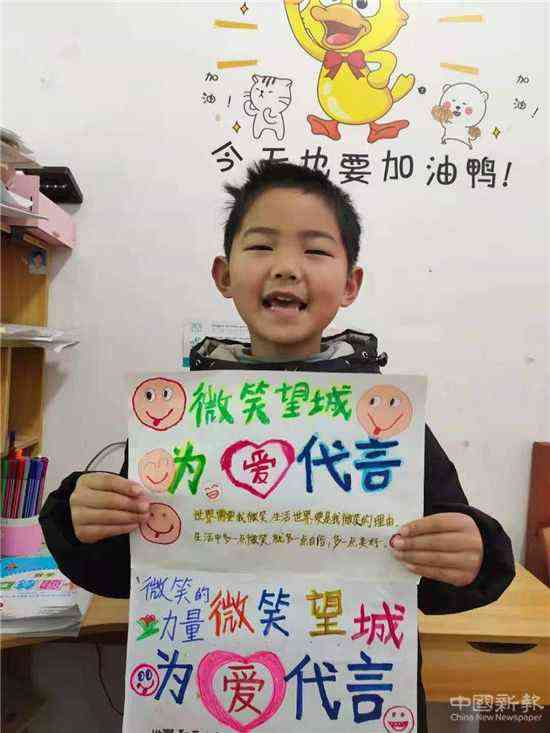 加油!
加油!
今天也要加油鸭!
微笑望城
为爱代言
世界需要我微笑,生活世界,要是我微笑的理由。
生活中多一点微笑,就多一点自信,多一点美好。
微笑的
力量微笑望城
为爱代言
中國新報
China New Newspaper